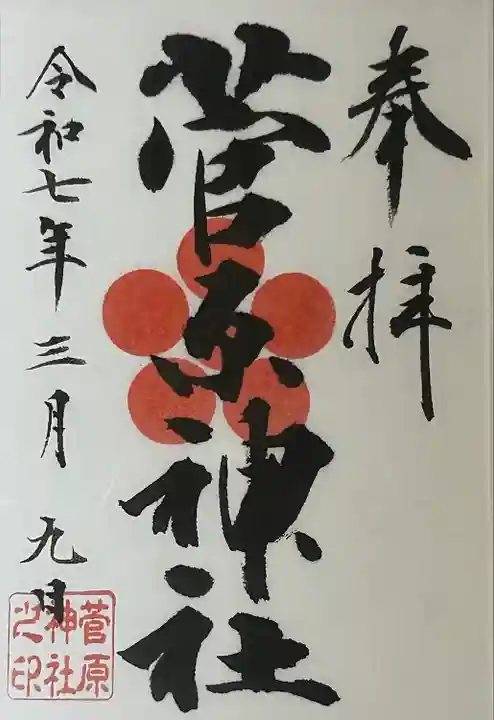 奉拝
菅原神社
令和七年三月九日
菅原
神社
之印